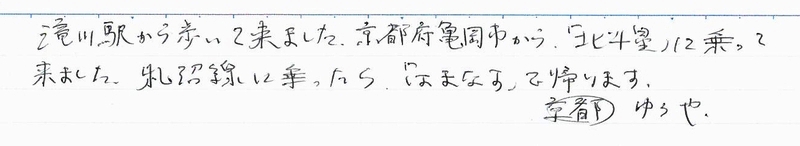 滝川駅から歩いて来ました。京都府亀岡市から、「北斗星」に乗って
来ました。札沼線に乗ったら、「はまなす」で帰ります。
京都 ゆうや.